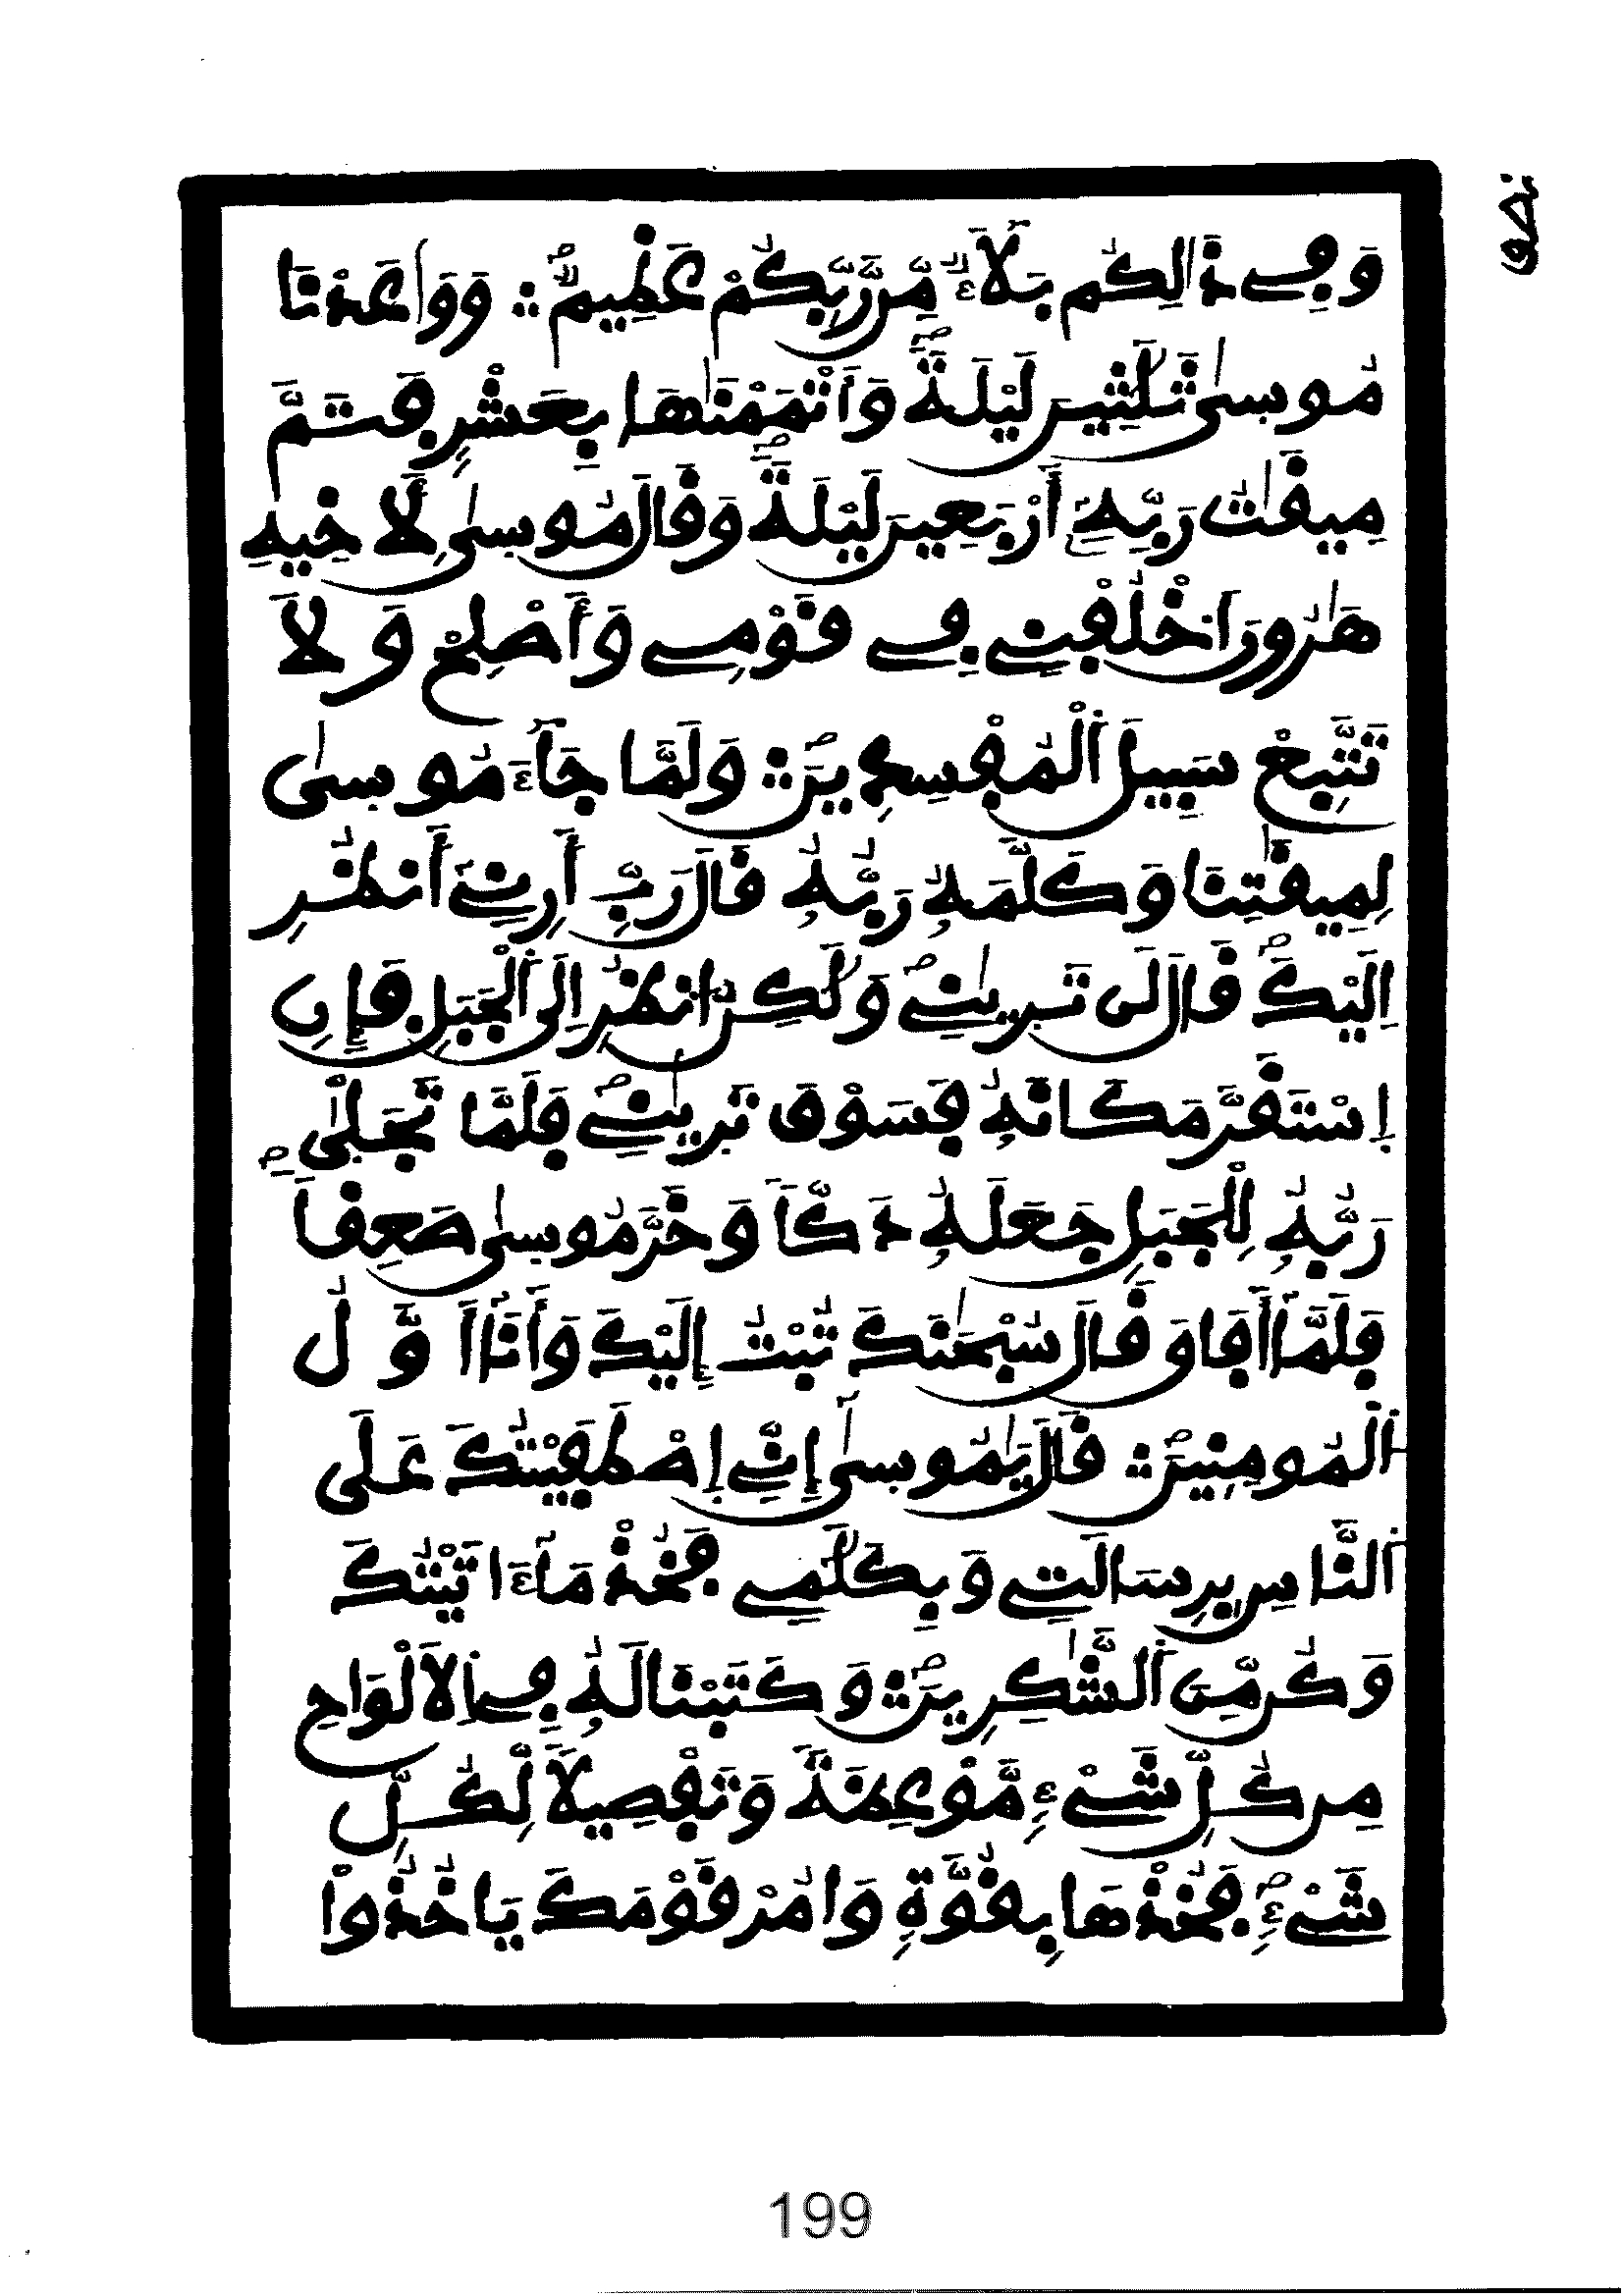 نصف
وَفِے ذَٰلِكُم بَلَآءٌ مِّن رَّبِّكُمْ عَظِيمٌ ۞ وَوَٰعَدْنَا
مُوسىٰ ثَلَٰثِينَ لَيْلَةً وَأَتْمَمْنَٰهَا بِعَشْرٍ فَتَمَّ
مِيقَٰتُ رَبِّهِۦٓ أَرْبَعِينَ لَيْلَةً وَقَالَ مُوسىٰ لِأَخِيهِ
هَٰرُونَ ٱخْلُفْنِے فِے قَوْمِے وَأَصْلِحْ وَلَا
تَتَّبِعْ سَبِيلَ ٱلْمُفْسِدِينَ ۞ وَلَمَّا جَآءَ مُوسىٰ
لِمِيقَٰتِنَا وَكَلَّمَهُۥ رَبُّهُۥ قَالَ رَبِّ أَرِنِےٓ أَنظُرِ
اِلَيْكَ قَالَ لَن تَرَىٰنِے وَلَٰكِنُ ٱنظُرِ اِلَى ٱلْجَبَلِ فَإِنِ
اِسْتَقَرَّ مَكَانَهُۥ فَسَوْفَ تَرَىٰنِے فَلَمَّا تَجَلّىٰ
رَبُّهُۥ لِلْجَبَلِ جَعَلَهُۥ دَكّاً وَخَرَّ مُوسىٰ صَعِقاً
فَلَمَّآ أَفَاقَ قَالَ سُبْحَٰنَكَ تُبْتُ إِلَيْكَ وَأَنَآ أَوَّلُ
ٱلْمُومِنِينَ ۞ قَالَ يَٰمُوسىٰٓ إِنِّے اِصْطَفَيْتُكَ عَلَى
ٱلنَّاسِ بِرِسَالَتِے وَبِكَلَٰمِے فَخُذْ مَآ ءَاتَيْتُكَ
وَكُن مِّنَ ٱلشَّٰكِرِينَ ۞ وَكَتَبْنَا لَهُۥ فِے اِلَالْوَاحِ
مِن كُلِّ شَےْءٍ مَّوْعِظَةً وَتَفْصِيلاً لِّكُلِّ
شَےْءٍ فَخُذْهَا بِقُوَّةٍ وَامُرْ قَوْمَكَ يَاخُذُواْ
199